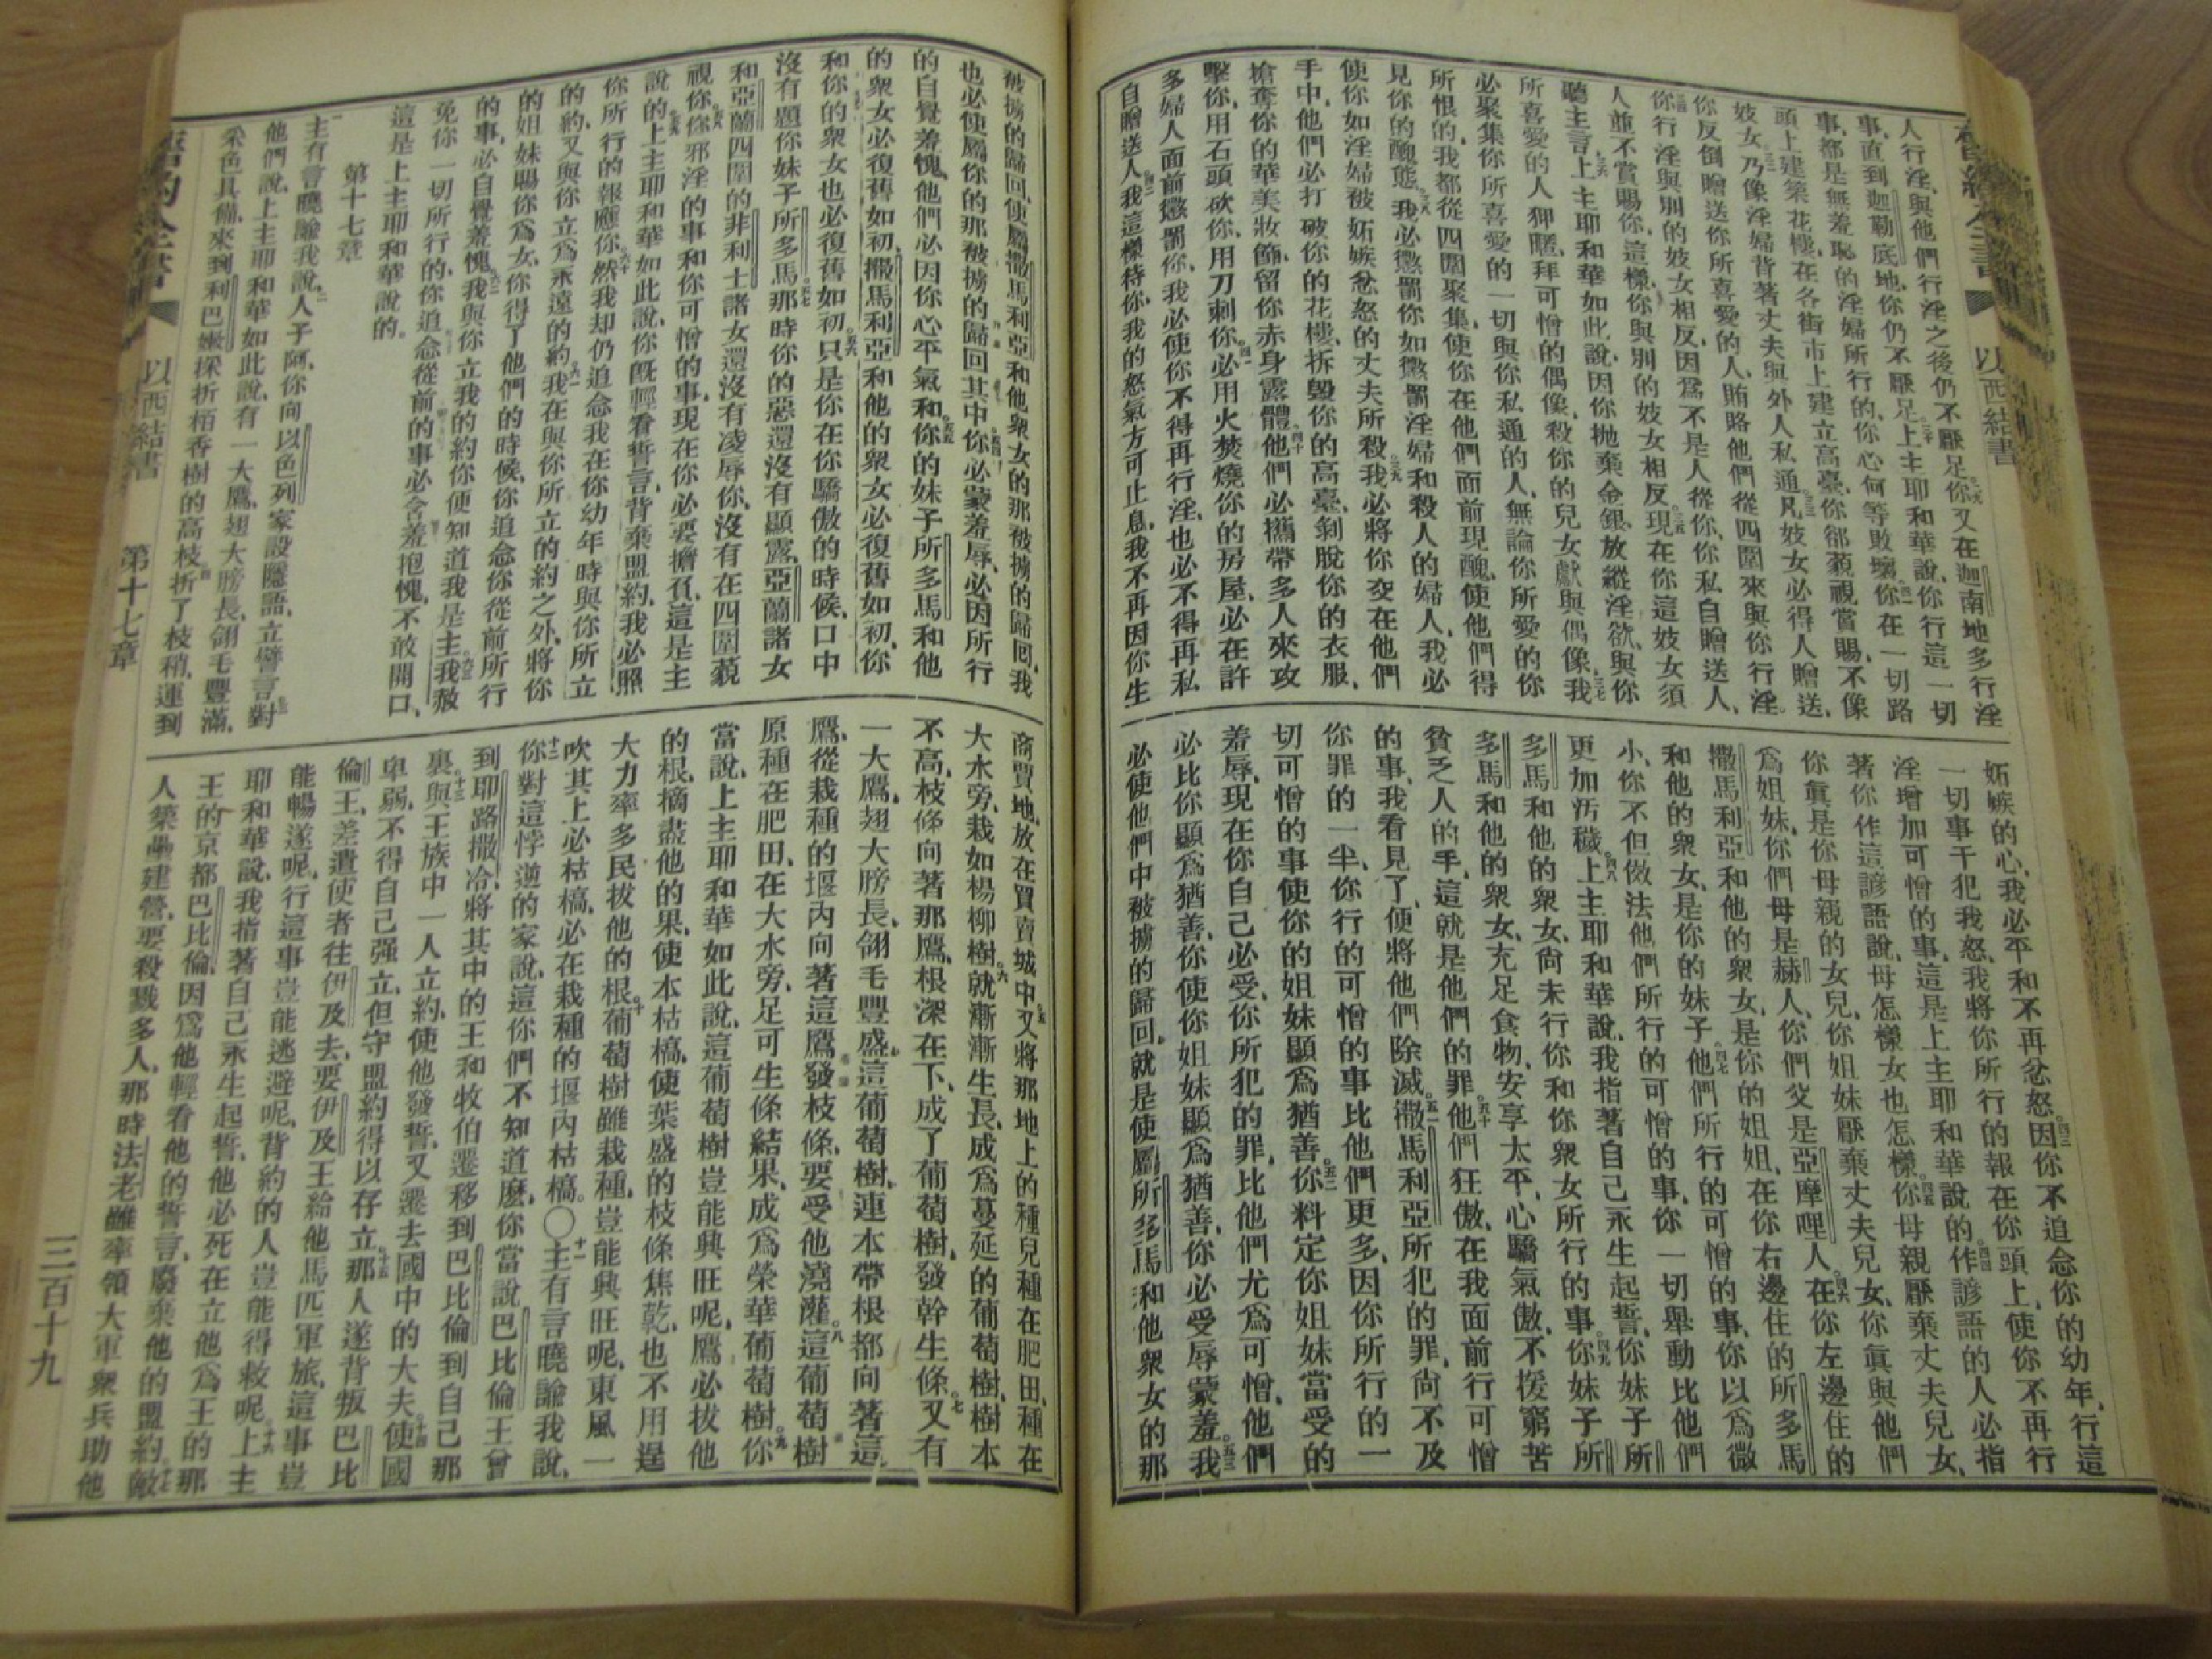 人行淫、與他們行淫之後仍不厭足、你又在迦南地多行淫
事、直到迦勒底地、你仍不厭足、上主耶和華說、你行這一切
事、都是無羞恥的淫婦所行的、你心何等敗壞、你在一切路
頭上建築花樓、在各街市上建立高臺、你卻藐視賞賜、不像
妓女、乃像淫婦背著丈夫與外人私通、凡妓女必得人贈送、
你反倒贈送你所喜愛的人、賄賂他們從四圍來與你行淫、
你行淫與別的妓女相反、因爲不是人從你、你私自贈送人、
人並不賞賜你、這樣、你與別的妓女相反、現在你這妓女須
聽主言、上主耶和華如此說、因你拋棄金銀、放縱淫欲、與你
所喜愛的人狎暱、拜可憎的偶像、殺你的兒女獻與偶像、我
必聚集你所喜愛的一切與你私通的人、無論你所愛的你
所恨的、我都從四圍聚集、使你在他們面前現醜、使他們得
見你的醜態、我必懲罰你如懲罰淫婦和殺人的婦人、我必
使你如淫婦被妬嫉忿怒的丈夫所殺、我必將你交在他們
手中、他們必打破你的花樓、拆毀你的高臺、剝脫你的衣服、
搶奪你的華美妝飾、留你赤身露體、他們必攜帶多人來攻
擊你、用石頭砍你、用刀刺你、必用火焚燒你的房屋、必在許
多婦人面前懲罰你、我必使你不得再行淫、也必不得再私
自贈送人、我這樣待你、我的怒氣方可止息、我不再因你生
妬嫉的心、我必平和不再忿怒、因你不追念你的幼年、行這
一切事干犯我怒、我將你所行的報在你頭上、使你不再行
淫增加可憎的事、這是上主耶和華說的、作諺語的人必指
著你作這諺語說、母怎樣女也怎樣、你母親厭棄丈夫兒女、
你眞是你母親的女兒、你姐妹厭棄丈夫兒女、你眞與他們
爲姐妹、你們母是赫人、你們父是亞摩哩人、在你左邊住的
撒馬利亞和他的衆女、是你的姐姐、在你右邊住的所多馬
和他的衆女、是你的妹子、他們所行的可憎的事、你以爲微
小、你不但倣法他們所行的可憎的事、你一切舉動比他們
更加汚穢、上主耶和華說、我指著自己永生起誓、你妹子所
多馬和他的衆女、尙未行你和你衆女所行的事、你妹子所
多馬和他的衆女、充足食物、安享太平、心驕氣傲、不援窮苦
貧乏人的手、這就是他們的罪、他們狂傲、在我面前行可憎
的事、我看見了、便將他們除滅、撒馬利亞所犯的罪、尙不及
你罪的一半、你行的可憎的事比他們更多、因你所行的一
切可憎的事使你的姐妹顯爲猶善、你料定你姐妹當受的
羞辱、現在你自己必受、你所犯的罪、比他們尤爲可憎、他們
必比你顯爲猶善、你使你姐妹顯爲猶善、你必受辱蒙羞、我
必使他們中被擄的歸回、就是使屬所多馬和他衆女的那
以西結書
被擄的歸回、使屬撒馬利亞和他衆女的那被擄的歸回、我
也必使屬你的那被擄的歸回其中、你必蒙羞辱、必因所行
的自覺羞愧、他們必因你心平氣和、你的妹子所多馬和他
的衆女必復舊如初、撒馬利亞和他的衆女必復舊如初、你
和你的衆女也必復舊如初、只是你在你驕傲的時候、口中
沒有題你妹子所多馬、那時你的惡還沒有顯露、亞蘭諸女
和亞蘭四圍的非利士諸女還沒有凌辱你、沒有在四圍藐
視你、你邪淫的事和你可憎的事、現在你必要擔負、這是主
說的、上主耶和華如此說、你旣輕看誓言、背棄盟約、我必照
你所行的報應你、然我却仍追念我在你幼年時與你所立
的約、又與你立爲永遠的約、我在與你所立的約之外、將你
的姐妹賜你爲女、你得了他們的時候、你追念你從前所行
的事、必自覺羞愧、我與你立我的約、你便知道我是主、我赦
免你一切所行的、你追念從前的事必含羞抱愧、不敢開口、
這是上主耶和華說的。
第十七章
主有言曉諭我說、人子阿、你向以色列家設隱語、立譬言、對
他們說、上主耶和華如此說、有一大鷹、翅大膀長、翎毛豐滿、
采色具備、來到利巴嫩、探折栢香樹的高枝、折了枝稍、運到
商賈地、放在買賣城中、又將那地上的種兒種在肥田、種在
大水旁、栽如楊柳樹、就漸漸生長、成爲蔓延的葡萄樹、樹本
不高、枝條向著那鷹、根深在下、成了葡萄樹、發幹生條、又有
一大鷹、翅大膀長、翎毛豐盛、這葡萄樹、連本帶根都向著這
鷹、從栽種的堰內向著這鷹發枝條、要受他澆灌、這葡萄樹
原種在肥田、在大水旁、足可生條結果、成爲榮華葡萄樹、你
當說、上主耶和華如此說、這葡萄樹豈能興旺呢、鷹必拔他
的根、摘盡他的果、使本枯槁、使葉盛的枝條焦乾、也不用逞
大力率多民拔他的根、葡萄樹雖栽種、豈能興旺呢、東風一
吹其上必枯槁、必在栽種的堰內枯槁。〇主有言曉諭我說、
你對這悖逆的家說、這你們不知道麽、你當說、巴比倫王曾
到耶路撒冷、將其中的王和牧伯遷移到巴比倫到自己那
裏、與王族中一人立約、使他發誓、又遷去國中的大夫、使國
卑弱、不得自己强立、但守盟約得以存立、那人遂背叛巴比
倫王、差遣使者往伊及去、要伊及王給他馬匹軍旅、這事豈
能暢遂呢、行這事豈能逃避呢、背約的人豈能得救呢、上主
耶和華說、我指著自己永生起誓、他必死在立他爲王的那
王的京都巴比倫、因爲他輕看他的誓言、廢棄他的盟約、敵
人築壘建營、要殺戮多人、那時法老雖率領大軍衆兵助他
以西結書
第十七章
三百十九